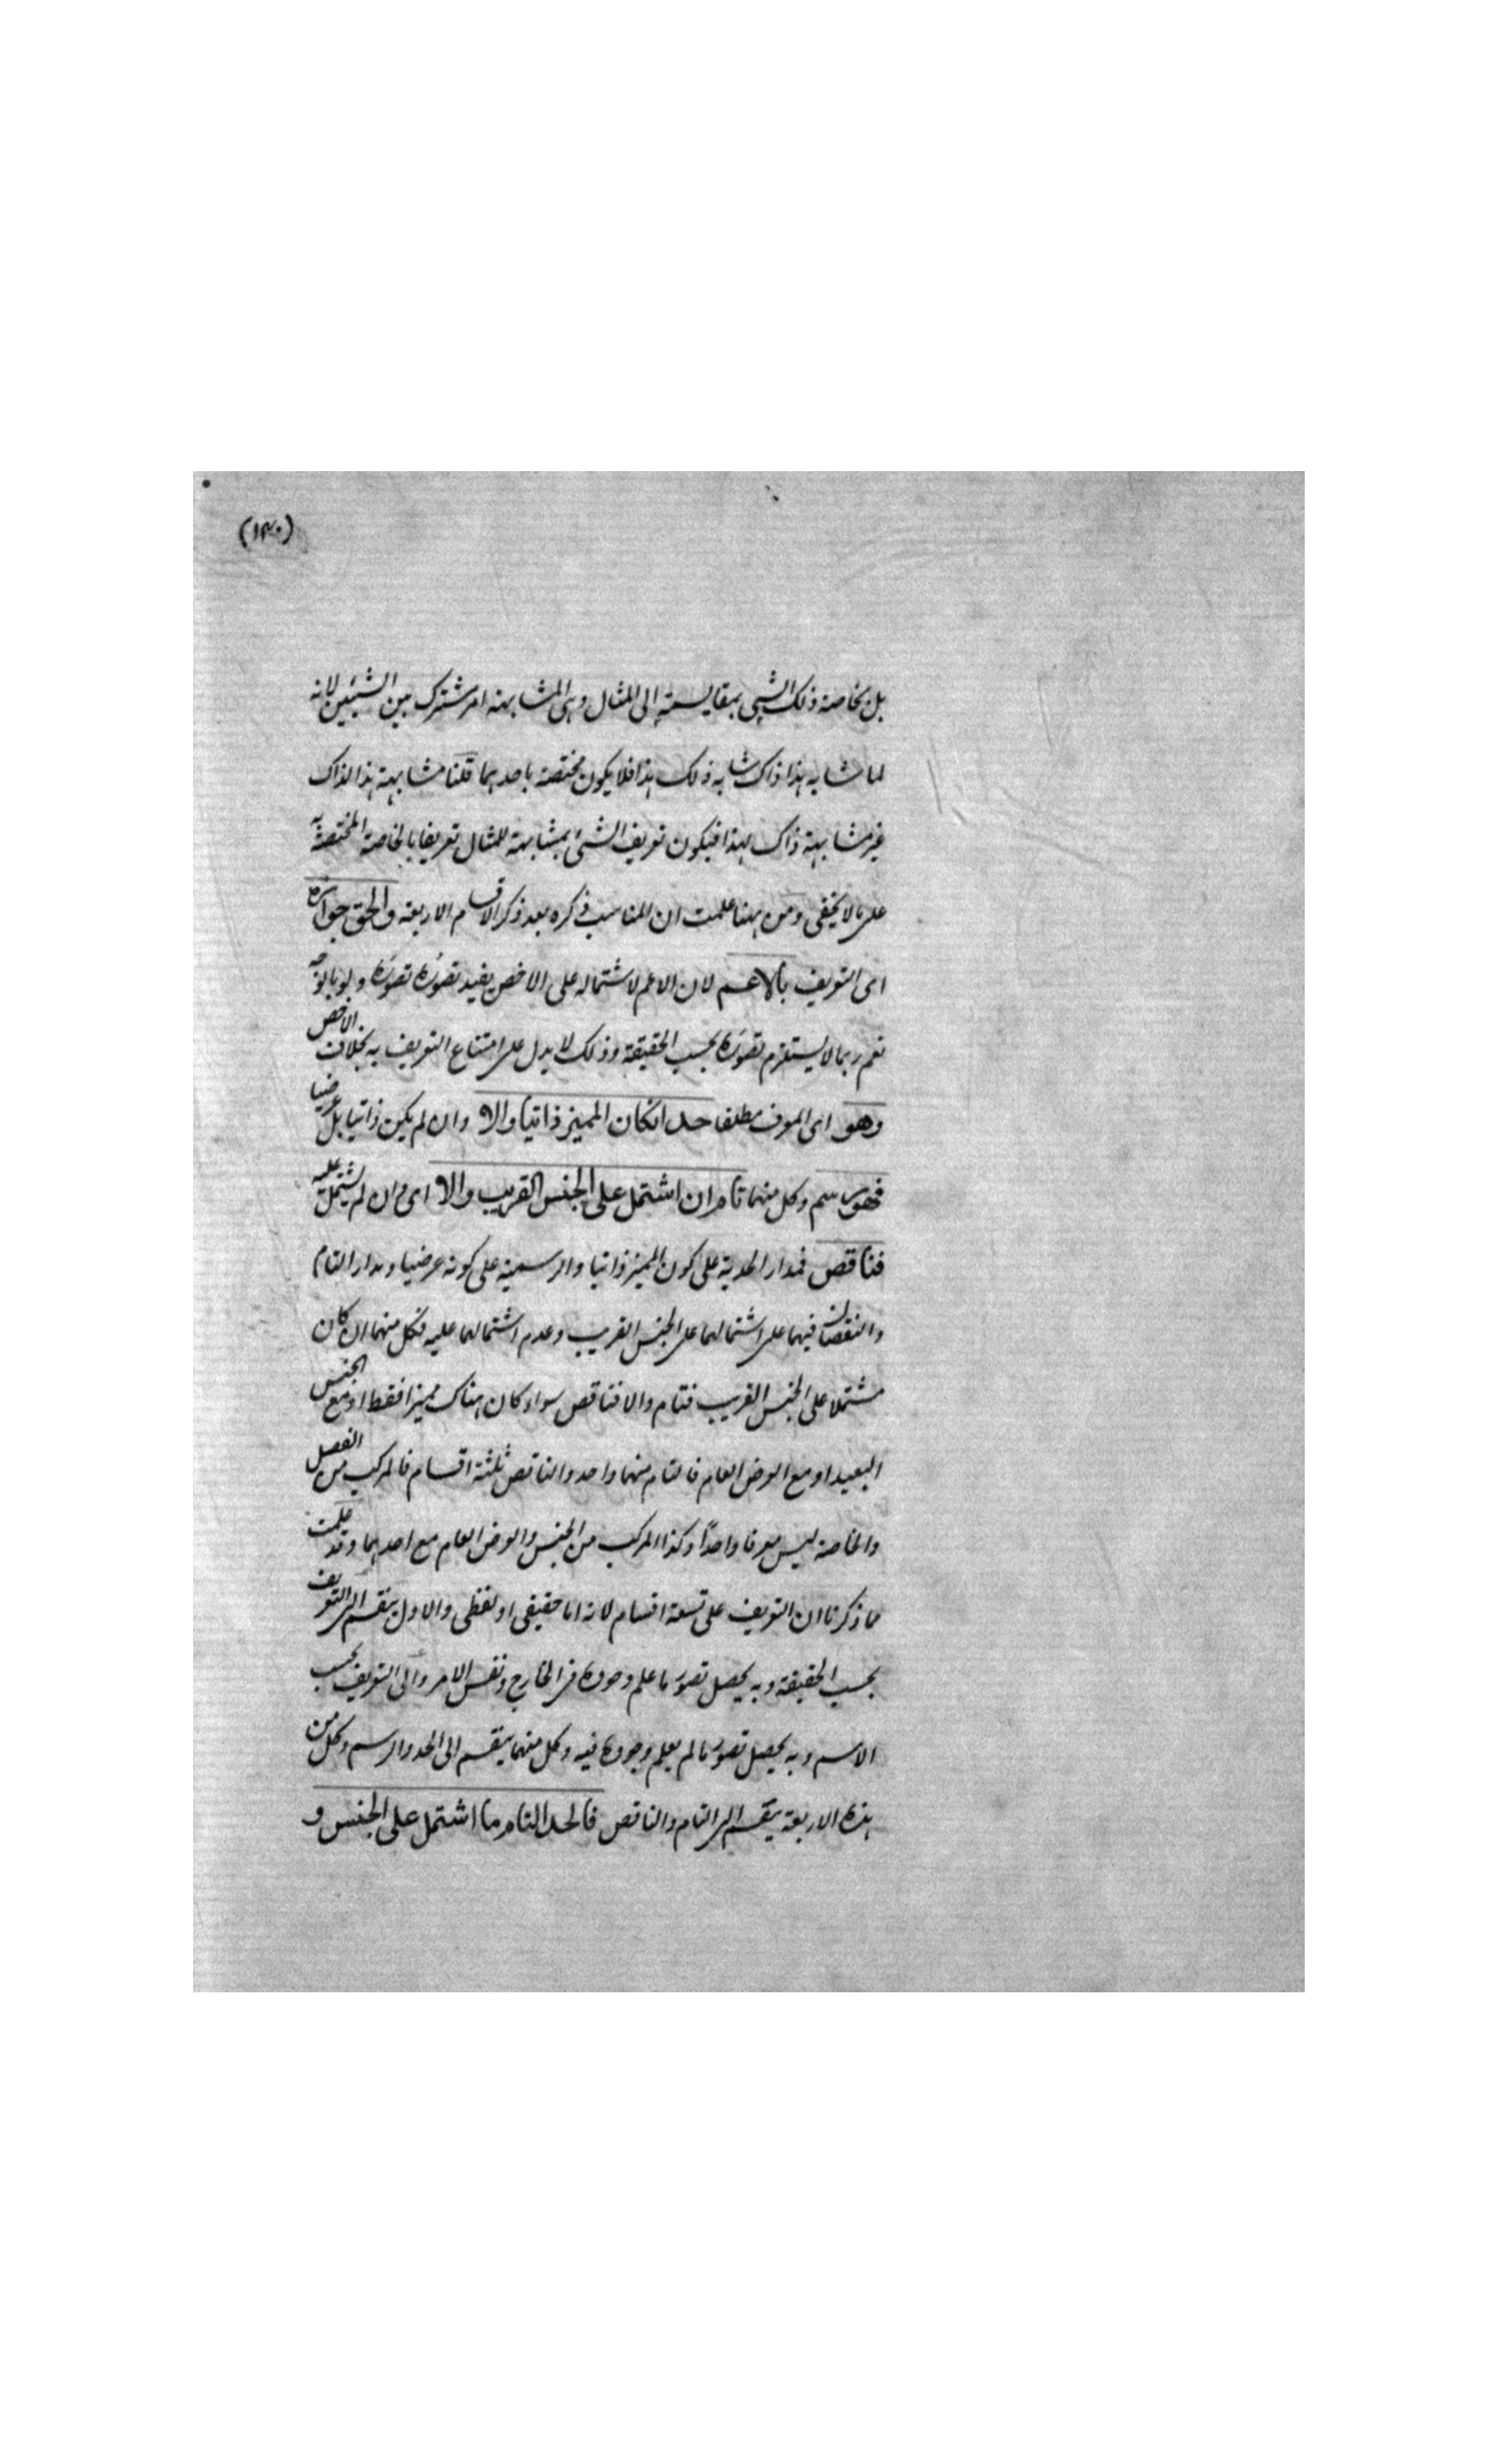 (١٣٠)
بل بخاصة ذلك الشيئ بمقايسته إلى المثال وهي المشابهة امر مشترك بين الشيئين لانه
لما شابه هذا ذاك شابه ذلك هذا فلا يكون مختصة باحدهما قلنا مشابهة هذا لذاك
غير مشابهة ذاك لهذا فيكون تعريف الشئ بمشابهة للمثال تعريفا بالخاصة المختصة به
على ما لا يخفى ومن ههنا علمت ان المناسب ذكره بعد ذكر الاقسام الاربعة والحق جوازه
اى التعريف بالاعم لان الاعم لاشتماله على الاخص يفيد تصوره تصوره ولو بالوجه
نعم ربما لا يستلزم تصوره بحسب الحقيقة وذلك لا يدل على امتناع التعريف به بخلاف الاخص
وهو اى المعرف مطلقا حد انكان المميز ذاتيا والا وان لم يكن ذاتيا بل عرضيا
فهو رسم وكل منهما تام ان اشتمل على الجنس القريب والا اى وان لم يشتمل عليه
فناقص فمدار الحدية على كون المميز ذاتيا والرسمية على كونه عرضيا ومدار التام
والنقصان فيهما على اشتمالهما على الجنس القريب وعدم اشتمالهما عليه فكل منهما ان كان
مشتملا على الجنس القريب فتام والا فناقص سواء كان هناك مميزا فقط او مع الجنس
البعيد او مع العرض العام فالتام منهما واحد والناقص ثلثة اقسام فالمركب من الفصل
والخاصة ليس معرفا واحدًا وكذا المركب من الجنس والعرض العام مع احدهما وقد علمت
مما ذكرنا ان التعريف على تسعة اقسام لانه اما حقيقى او لفظى والاول ينقسم الى التعريف
بحسب الحقيقة وبه يحصل تصور ما علم وجوده فى الخارج ونفس الامر والى التعريف بحسب
الاسم وبه يحصل تصور ما لم يعلم وجوده فيه وكل منهما ينقسم الى الحد والرسم وكل من
هذه الاربعة ينقسم الى التام والناقص فالحد التام ما اشتمل على الجنس و